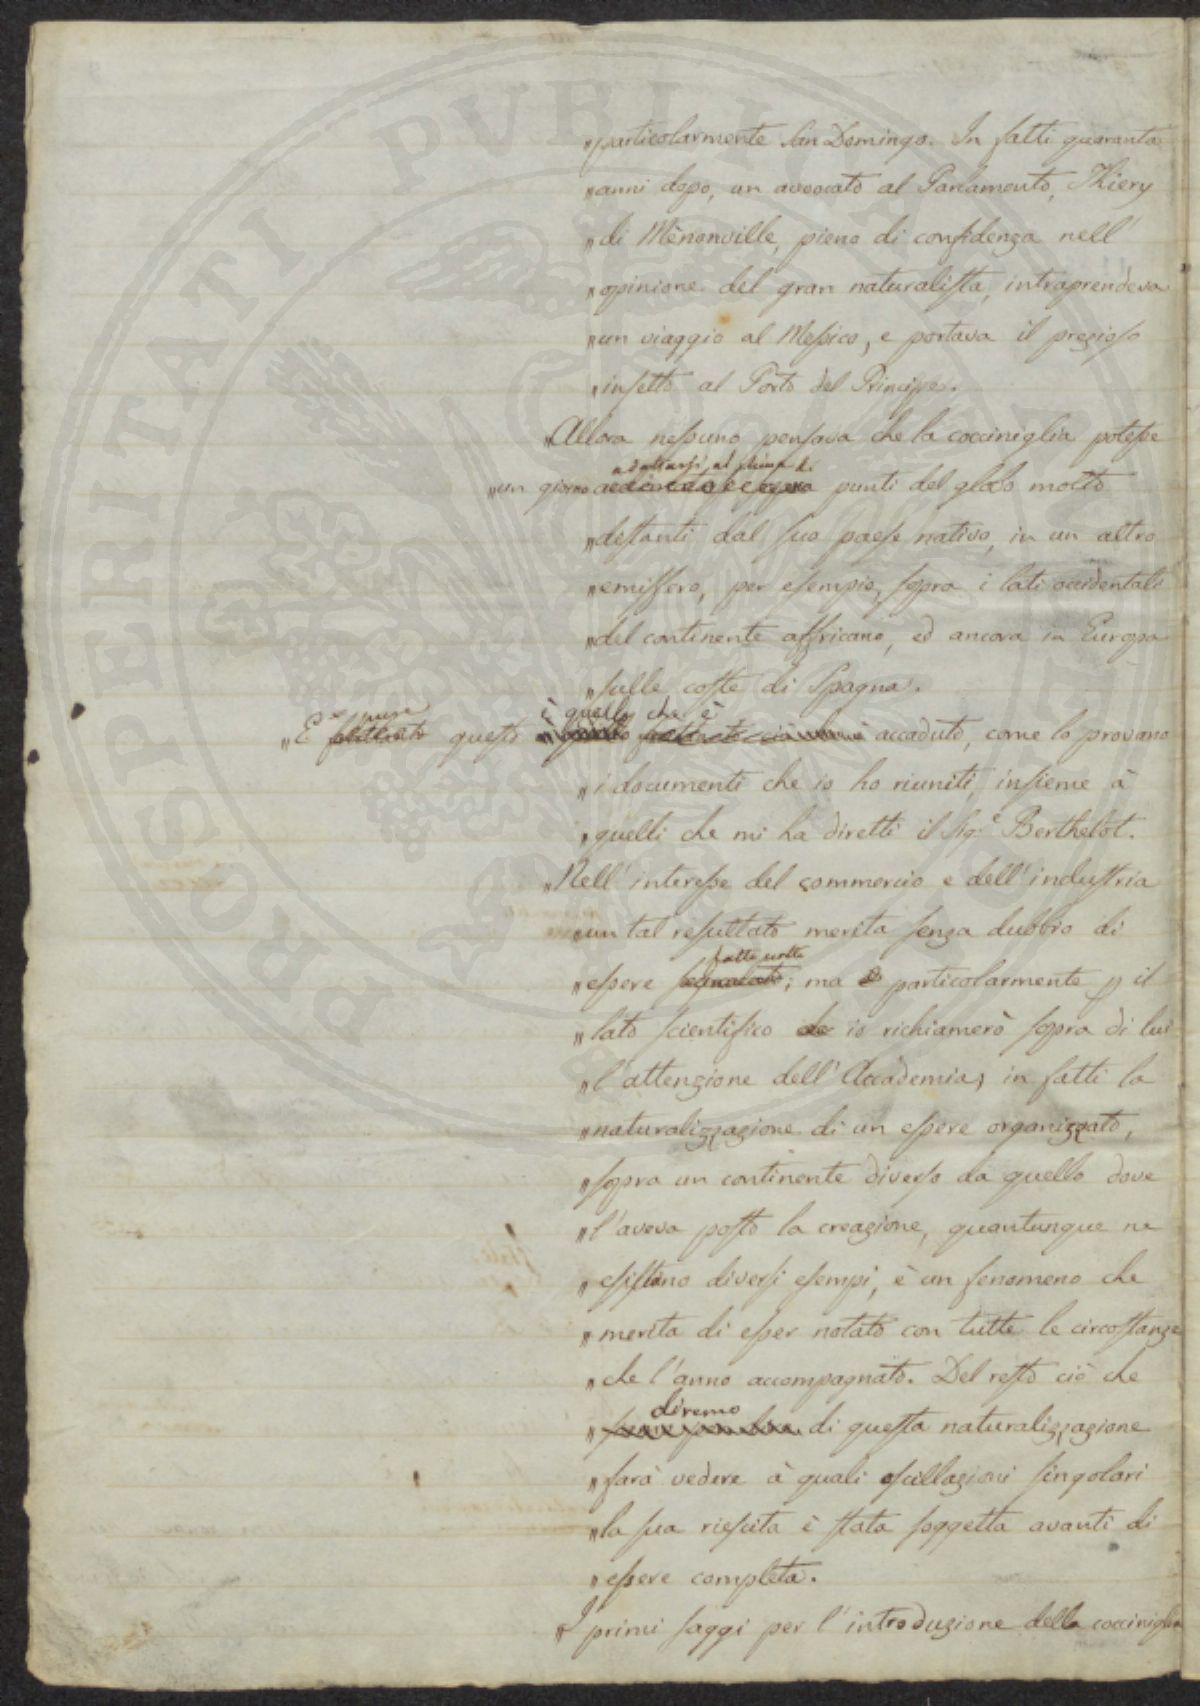 „particolarmente San Domingo. In fatti quaranta
„anni dopo, un avvocato al Parlamento, Thiery
„di Mènonville, pieno di confidenza nell'
„opinione del gran naturalista, intraprendeva
„un viaggio al Messico, e portava il prezioso
„insetto al Porto del Principe.
„Allora nessuno pensava che la cocciniglia potesse
„un giorno punti del globo molto
„distanti dal suo paese nativo, in un altro
„emisfero, per esempio, sopra i lati occidentali
„del continente affricano, ed ancora in Europa
„sulle coste di Spagna.
è quello che è
„E pure questo accaduto, come lo provano
„i documenti che io ho riuniti, insieme à
„quelli che mi ha diretti il Sig.e Berthelot.
„Nell'interesse del commercio e dell'industria
„un tal resultato merita senza dubbio di
„essere segnalato; ma è particolarmente p il
„lato scientifico che io richiamerò sopra di lui
„l'attenzione dell'Accademia, in fatti la
„naturalizzazione di un essere organizzato,
„sopra un continente diverso da quello dove
„l'aveva posto la creazione, quantunque ne
„esistino diversi esempi, è un fenomeno che
„merita di esser notato con tutte le circostanze
„che l'anno accompagnato. Del resto ciò che
diremo
„di questa naturalizzazione
„farà vedere à quali oscillazioni singolari
„la sua riescita è stata soggetta avanti di
„essere completa.
„I primi saggi per l'introduzione della cocciniglia
PROSPERITATI PVBLICAE